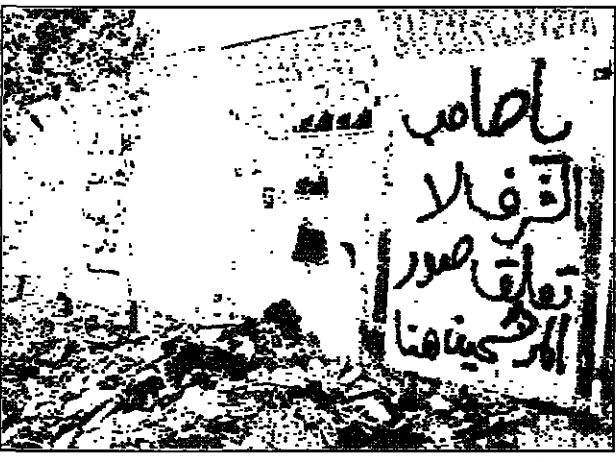 يا صاحب
الشرف لا
تعلق صور
المرشحين هنا